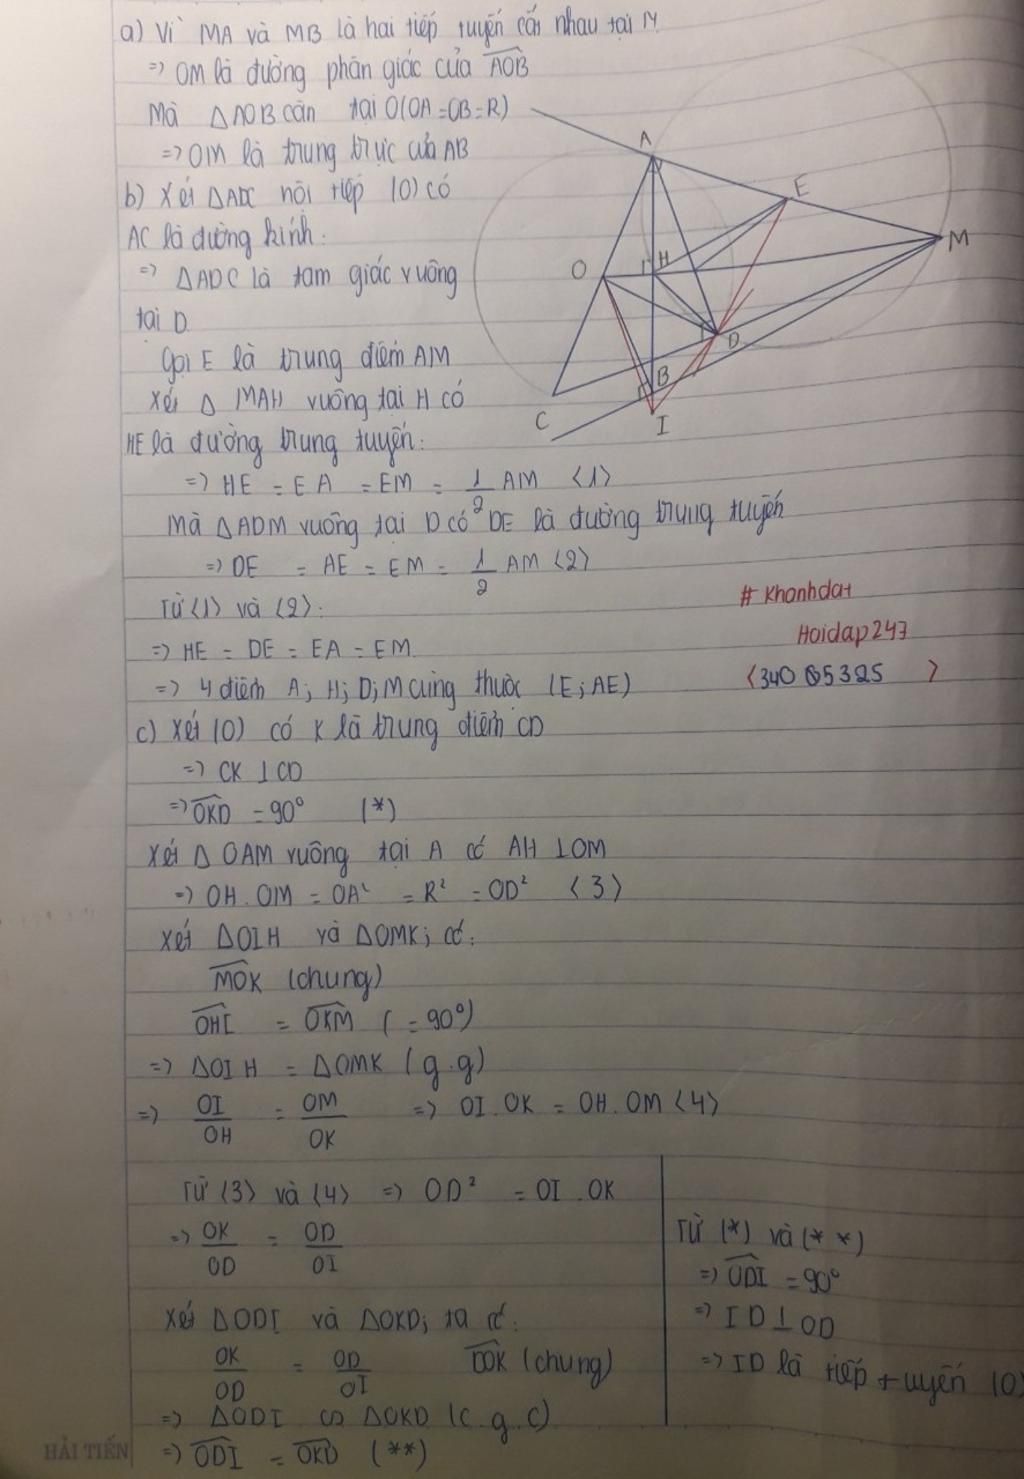 a) Vì MA và MB là hai tiếp tuyến cắt nhau tại M.
=> OM là đường phân giác của AOB
Mà ΔAOB cân tại O(OA=OB=R)
=> OM là trung trực của AB
b) Xét ΔADC nội tiếp (O) có
AC là đường kính:
=> ΔADC là tam giác vuông
tại D.
Gọi E là trung điểm AM
Xét Δ MAH vuông tại H có
HE là đường trung tuyến:
=> HE = EA = EM = 1/2 AM <1>
Mà ΔADM vuông tại D có DE là đường trung tuyến
=> DE = AE = EM = 1/2 AM <2>
Từ <1> và <2>:
=> HE = DE = EA = EM
=> 4 điểm A; H; D; M cùng thuộc (E; AE)
c) Xét (O) có K là trung điểm CD
=> CK ⊥ CD
=> OKD = 90° (*)
Xét Δ OAM vuông tại A có AH ⊥ OM
=> OH.OM = OA² = R² = OD² <3>
Xét ΔOIH và ΔOMK; có:
MOK (chung)
OHI = OKM (=90°)
=> ΔOIH = ΔOMK (g.g)
=> OI/OH = OM/OK => OI.OK = OH.OM <4>
Từ <3> và <4> => OD² = OI.OK
=> OK/OD = OD/OI
Xét ΔODI và ΔOKD; ta có:
OK/OD = OD/OI DOK (chung)
=> ΔODI ∽ ΔOKD (c.g.c)
=> ODI = OKD (**)
Từ (*) và (**)
=> ODI = 90°
=> ID ⊥ OD
=> ID là tiếp tuyến (O)
A
E
M
H
O
D
B
C
I
# Khanhdat
Hoidap247
HẢI TIẾN